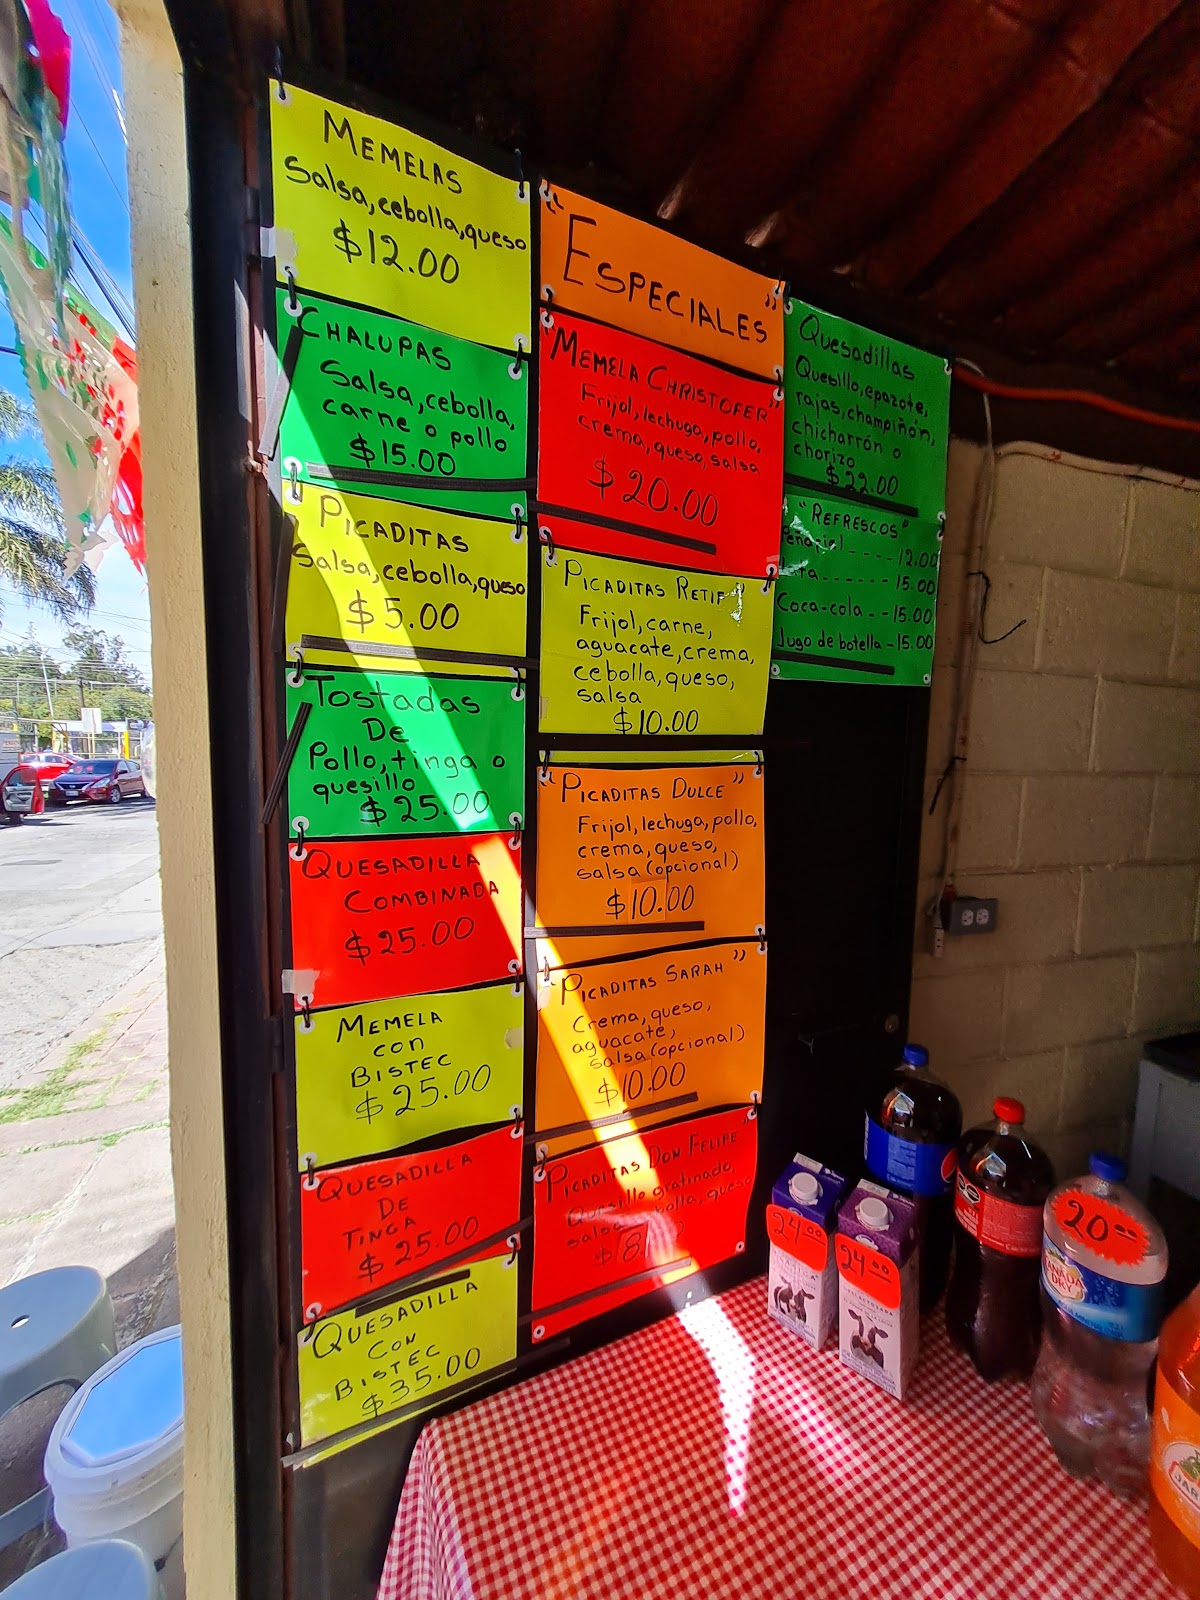 MEMELAS
Salsa, cebolla, queso
$12.00
CHALUPAS
Salsa, cebolla,
carne o pollo
$15.00
PICADITAS
Salsa, cebolla, queso
$5.00
TOSTADAS
DE
Pollo, tinga o
quesillo
$25.00
QUESADILLA
COMBINADA
$25.00
MEMELA
con
BISTEC
$25.00
QUESADILLA
DE
TINGA
$25.00
QUESADILLA
CON
BISTEC
$35.00
"ESPECIALES"
"MEMELA CHRISTOFER"
Frijol, lechuga, pollo,
crema, queso, salsa
$20.00
PICADITAS
Frijol, carne,
aguacate, crema,
cebolla, queso,
salsa
$10.00
"PICADITAS DULCE"
Frijol, lechuga, pollo,
crema, queso,
salsa (opcional)
$10.00
"PICADITAS SARAH"
Crema, queso,
aguacate,
salsa (opcional)
$10.00
"PICADITAS DON FELIPE"
Quesillo gratinado,
salsa, queso
Quesadillas
Quesillo, epazote,
rajas, champiñón,
chicharrón o
chorizo
$22.00
"REFRESCOS"
---- 12.00
------ 15.00
Coca-cola -- 15.00
Jugo de botella - 15.00
24.00
24.00
20.00
CANADA
DRY